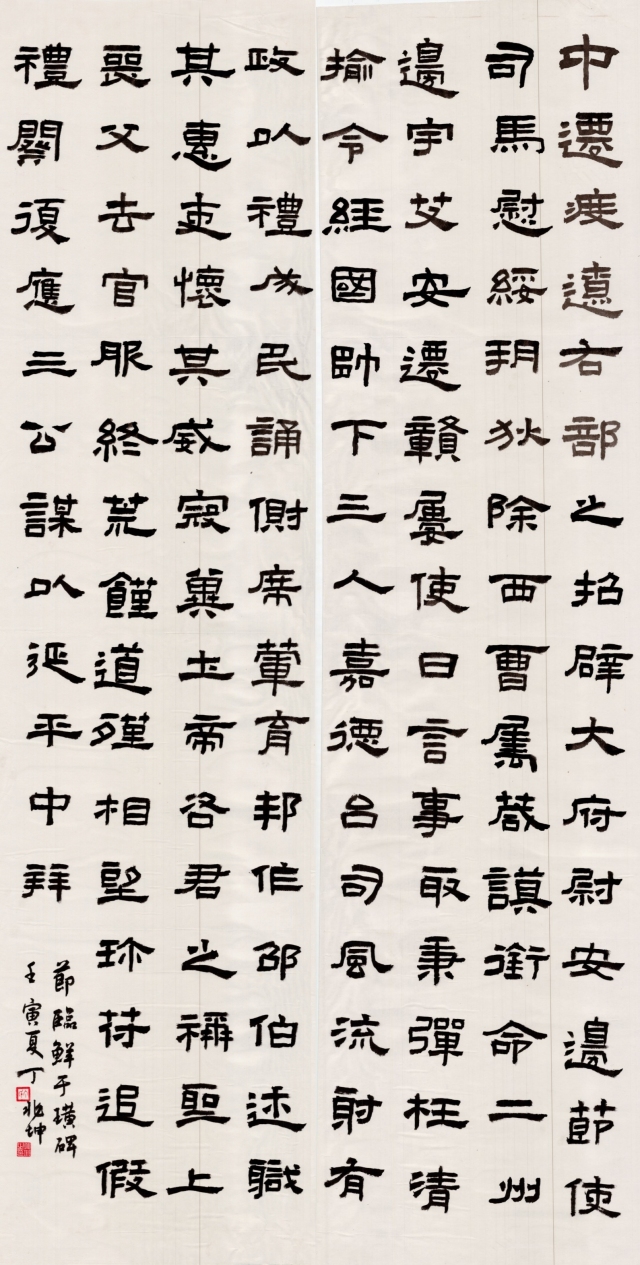 中遷度遼右部之招辟大府尉安邊節使
司馬慰綏朔狄除西曹屬箴謨銜命二州
邊宇艾安遷贛屢使日言事取秉彈枉清
揄令經國帥下三人嘉德呂司風流射有
政以禮成民誦側席葷育邦作邵伯述職
其惠吏懷其威寇冀土帝咨君之禰聖上
喪父去官服終荒饉道殣相望珎苻追假
禮闋復應三公謀以延平中拜
節臨鮮于璜碑
壬寅夏丁兆坤